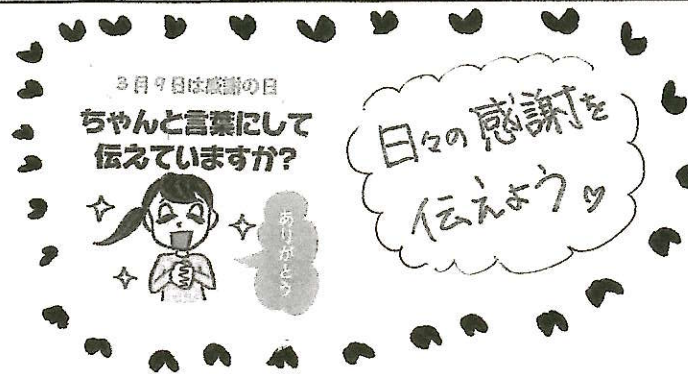 3月9日は感謝の日
ちゃんと言葉にして
伝えていますか?
ありがとう
日々の感謝を
伝えようツ